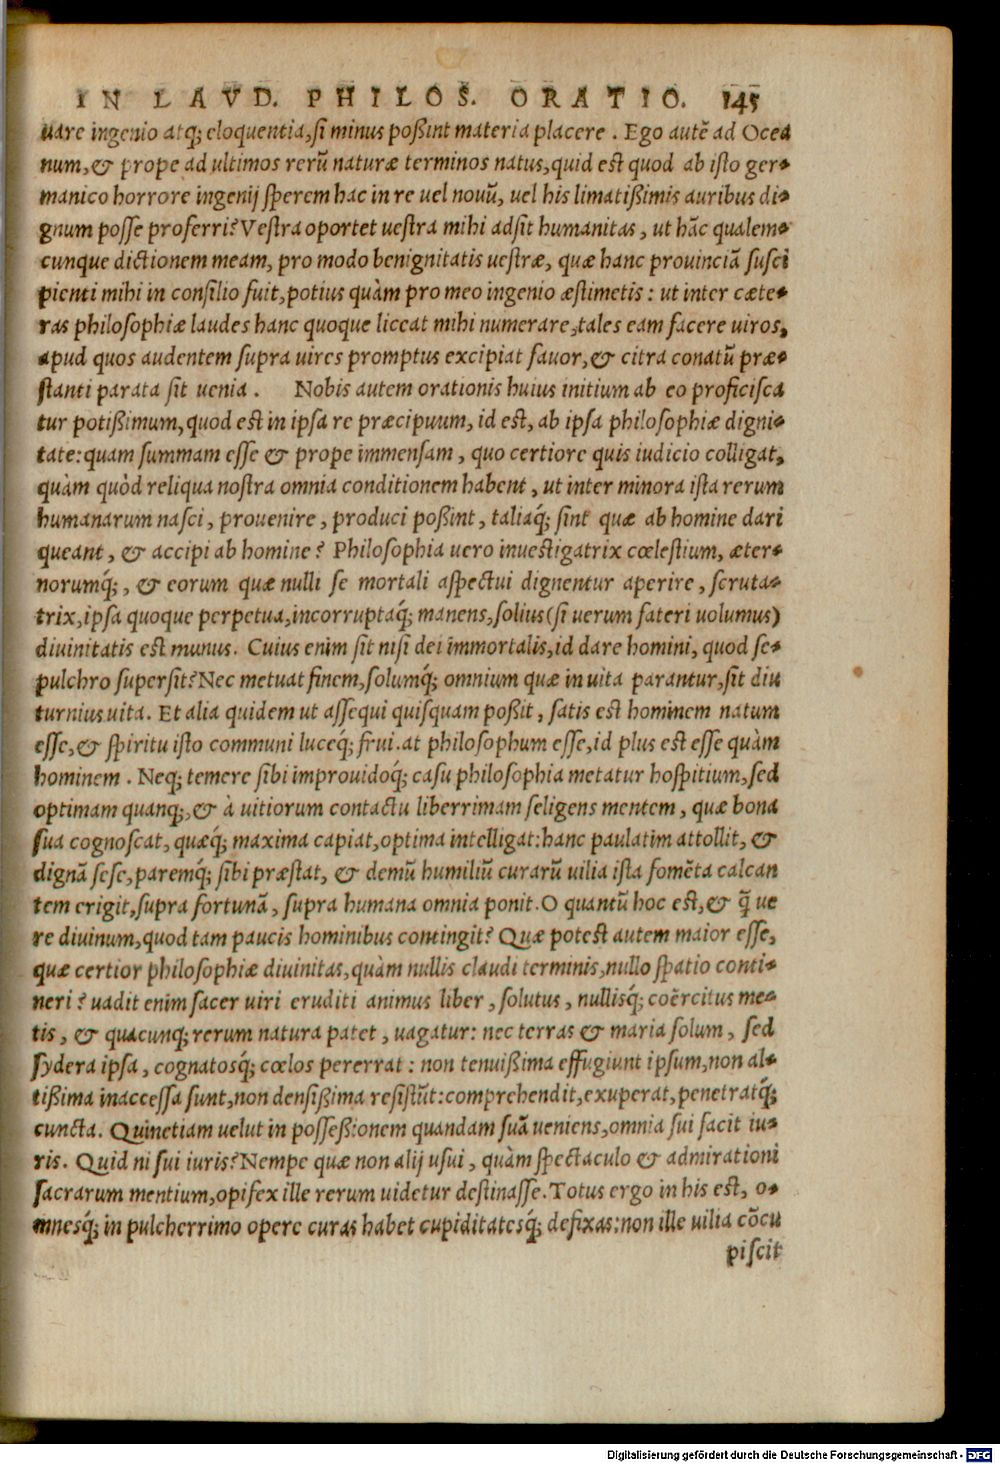 IN LAVD. PHILOS. ORATIO. 145
uare ingenio atq́; eloquentia, si minus poßint materia placere. Ego autẽ ad Ocea
num, & prope ad ultimos rerũ naturæ terminos natus, quid est quod ab isto ger-
manico horrore ingenij sperem hac in re uel nouũ, uel his limatißimis auribus di-
gnum posse proferri? Vestra oportet uestra mihi adsit humanitas, ut hãc qualem-
cunque dictionem meam, pro modo benignitatis uestræ, quæ hanc prouinciã susci
pienti mihi in consilio fuit, potius quàm pro meo ingenio æstimetis: ut inter cæte-
ras philosophiæ laudes hanc quoque liceat mihi numerare, tales eam facere uiros,
apud quos audentem supra uires promptus excipiat fauor, & citra conatũ præ-
stanti parata sit uenia. Nobis autem orationis huius initium ab eo proficisca
tur potißimum, quod est in ipsa re præcipuum, id est, ab ipsa philosophiæ digni-
tate: quam summam esse & prope immensam, quo certiore quis iudicio colligat,
quàm quòd reliqua nostra omnia conditionem habent, ut inter minora ista rerum
humanarum nasci, prouenire, produci poßint, taliaq́; sint quæ ab homine dari
queant, & accipi ab homine? Philosophia uero inuestigatrix cœlestium, æter-
norumq́;, & eorum quæ nulli se mortali aspectui dignentur aperire, scruta-
trix, ipsa quoque perpetua, incorruptaq́; manens, solius (si uerum fateri uolumus)
diuinitatis est munus. Cuius enim sit nisi dei immortalis, id dare homini, quod se-
pulchro supersit? Nec metuat finem, solumq́; omnium quæ in uita parantur, sit diu
turnius uita. Et alia quidem ut assequi quisquam poßit, satis est hominem natum
esse, & spiritu isto communi luceq́; frui. at philosophum esse, id plus est esse quàm
hominem. Neq; temere sibi improuidoq́; casu philosophia metatur hospitium, sed
optimam quanq;, & à uitiorum contactu liberrimam seligens mentem, quæ bona
sua cognoscat, quæq́; maxima capiat, optima intelligat: hanc paulatim attollit, &
dignã sese, paremq́; sibi præstat, & demũ humiliũ curarũ uilia ista fomẽta calcan
tem erigit, supra fortunã, supra humana omnia ponit. O quantũ hoc est, & q̃ ue
re diuinum, quod tam paucis hominibus contingit? Quæ potest autem maior esse,
quæ certior philosophiæ diuinitas, quàm nullis claudi terminis, nullo spatio conti-
neri? uadit enim sacer uiri eruditi animus liber, solutus, nullisq́; coërcitus me-
tis, & quacunq; rerum natura patet, uagatur: nec terras & maria solum, sed
sydera ipsa, cognatosq́; cœlos pererrat: non tenuißima effugiunt ipsum, non al-
tißima inaccessa sunt, non densißima resistũt: comprehendit, exuperat, penetratq́;
cuncta. Quinetiam uelut in poßeßionem quandam suã ueniens, omnia sui facit iu-
ris. Quid ni sui iuris? Nempe quæ non alij usui, quàm spectaculo & admirationi
sacrarum mentium, opifex ille rerum uidetur destinasse. Totus ergo in his est, o-
mnesq́; in pulcherrimo opere curas habet cupiditatesq́; defixas: non ille uilia cõcu
piscit
Digitalisierung gefördert durch die Deutsche Forschungsgemeinschaft - DFG